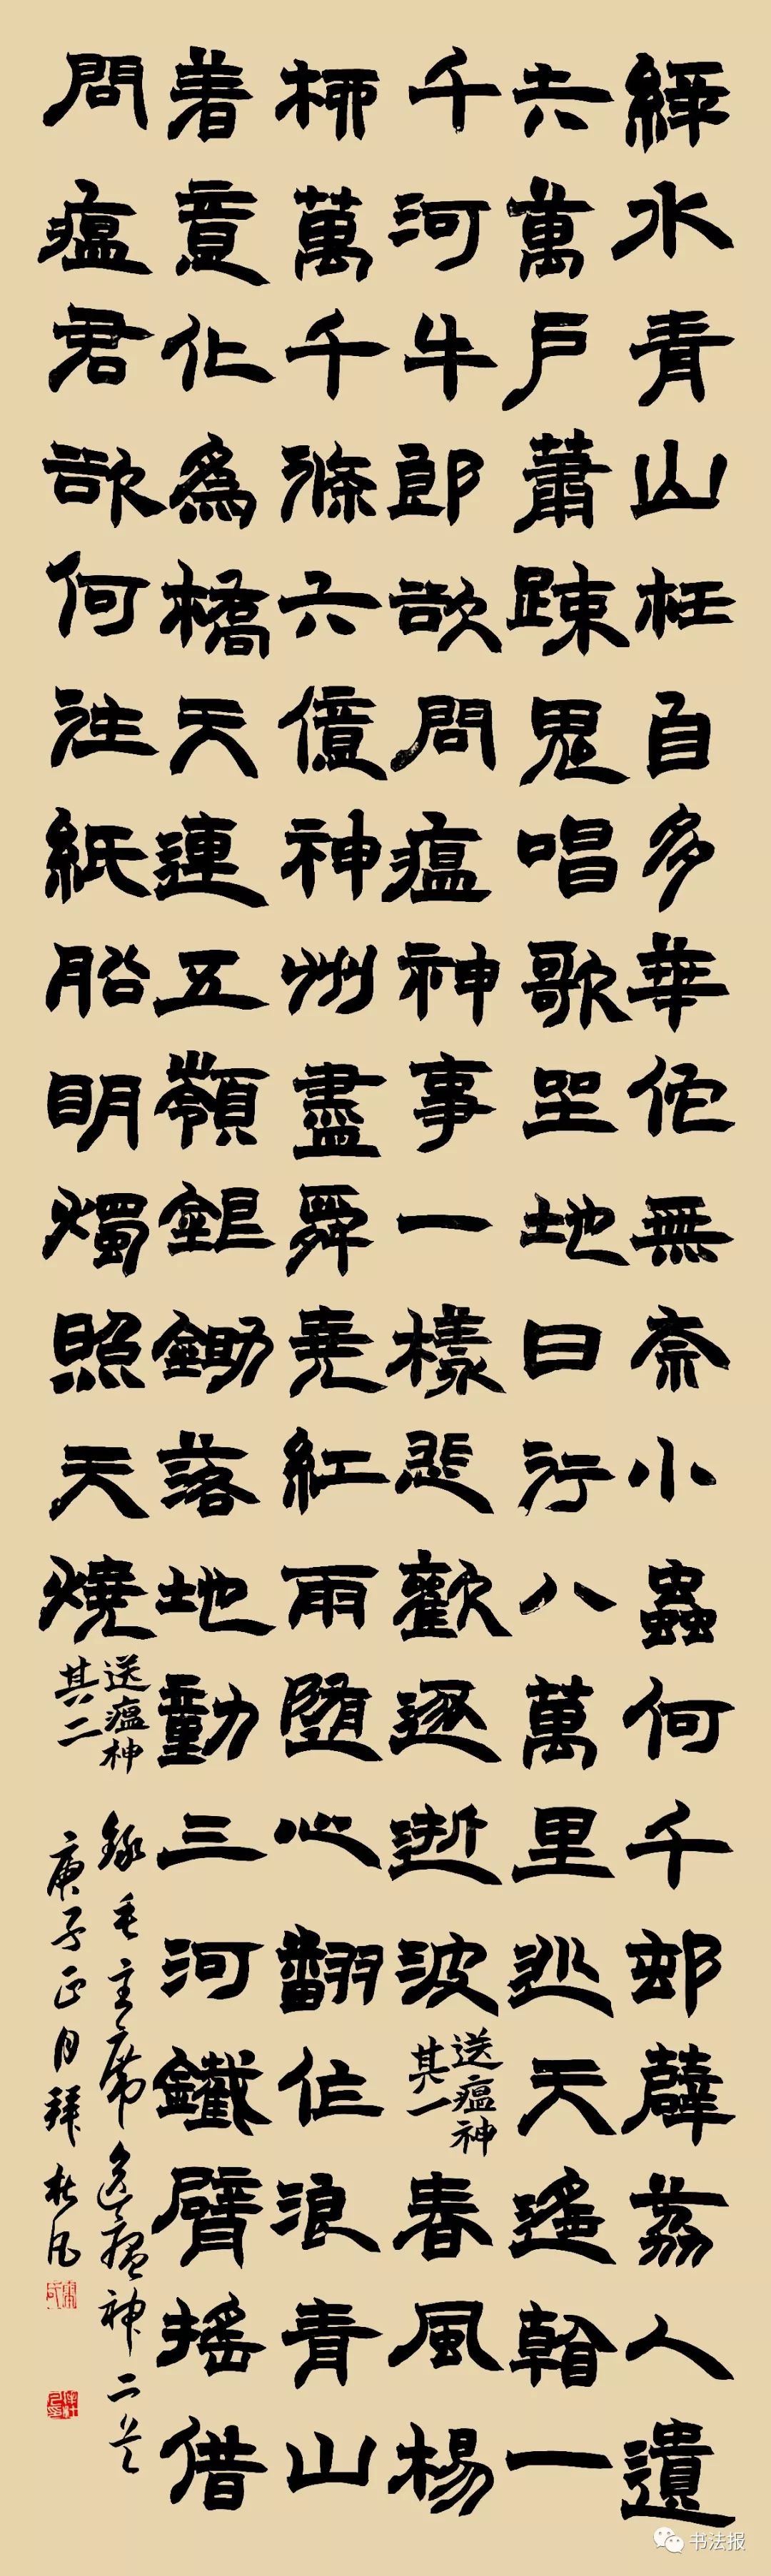 綠水青山枉自多華佗無奈小蟲何千邨薜荔人遺
矢萬戶蕭踈鬼唱歌坐地日行八萬里巡天遙看一
千河牛郎欲問瘟神事一樣悲歡逐逝波
送瘟神
其一
春風楊
柳萬千條六億神州盡舜堯紅雨隨心翻作浪青山
着意化為橋天連五嶺銀鋤落地動三河鐵臂搖借
問瘟君欲何往紙船明燭照天燒
送瘟神
其二
錄毛主席送瘟神二首
庚子正月拜
书法报